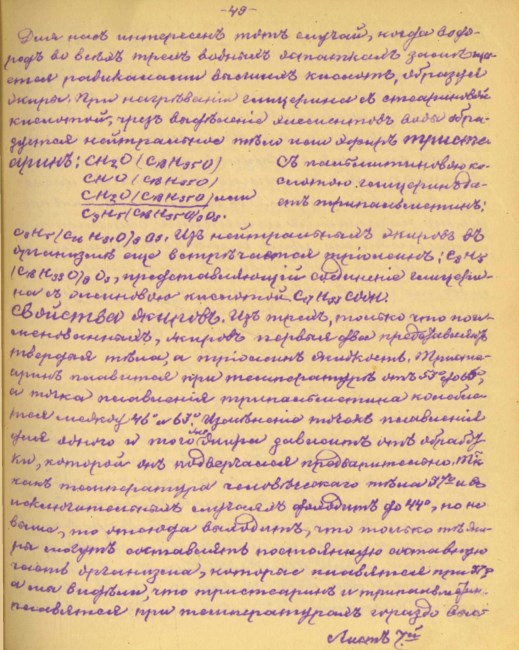 -49-
Для насъ интересенъ тотъ случай, когда водо-
родъ во всѣхъ трехъ водныхъ остаткахъ замѣща-
ется радикалами высшихъ кислотъ, образуя
жиры. При нагрѣваніи глицерина съ стеариновой
кислотой, чрезъ выдѣленіе элементовъ воды обра-
зуется нейтральное тѣло или эфиръ тристе-
аринъ; CH2O(C18H35O)
CHO(C18H35O)
CH2O(C18H35O) или
C3H5(C18H35O)3O3.
Съ пальмитиновою ки-
слотою глицеринъ да-
етъ трипальмитинъ;
C3H5(C16H31O)3O3. Изъ нейтральныхъ жировъ въ
организмѣ еще встрѣчается тріолеинъ; C3H5
(C18H33O)3O3, представляющій соединеніе глицери-
на съ олеиновою кислотой C17H33COOH.
Свойства жировъ. Изъ трехъ, только что поиме-
менованныхъ, жировъ первые два представляютъ
твердыя тѣла, а тріолеинъ жидкость. Тристе-
аринъ плавится при температурѣ отъ до
а точка плавленія трипальмитина колеблет-
ся между 46° и Измѣненіе точекъ плавленія
для одного и того же жира зависитъ отъ обработ-
ки, которой онъ подвергался предварительно. Такъ
какъ температура человѣческаго тѣла и въ
исключительныхъ случаяхъ доходитъ до 44°, но не
выше, то отсюда выходитъ, что только тѣ жи-
ры могутъ составлять постоянную составную
часть организма, которые плавятся при
а мы видѣли, что тристеаринъ и трипальмитинъ
плавятся при температурахъ гораздо выс-
Листъ 7й